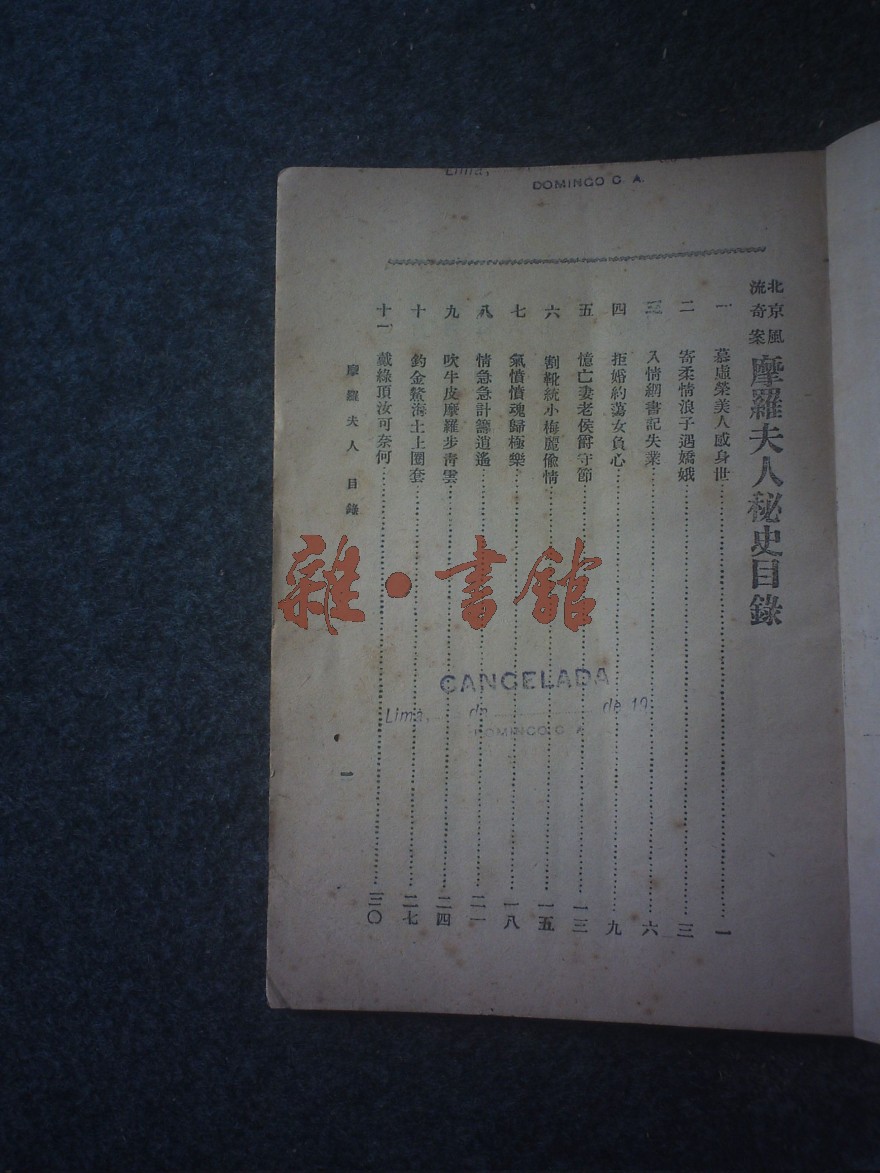 北京風
流奇案
摩羅夫人秘史目錄
一 慕虛榮美人感身世 一
二 寄柔情浪子遇嬌娥 三
三 入情網書記失業 六
四 拒婚約蕩女負心 九
五 憶亡妻老侯爵守節 一三
六 割靴統小梅麗偷情 一五
七 氣憤憤魂歸極樂 一八
八 情急急計籌逍遙 二一
九 吹牛皮摩羅步青雲 二四
十 釣金鰲海士上圈套 二七
十一 戴綠頂汝可奈何 三〇
摩羅夫人 目錄
一
Lima,
DOMINGO C. A.
CANCELADA
Lima, de de 19
DOMINGO C. A.
雜·書館